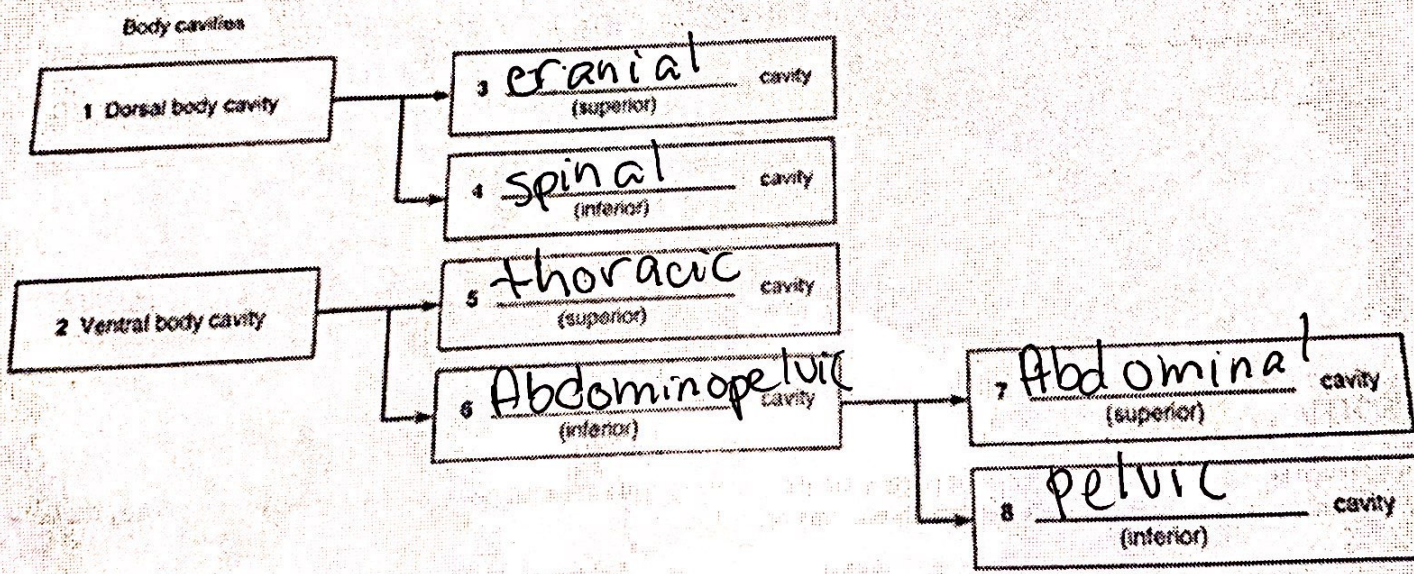 Body cavities
1 Dorsal body cavity
3 cranial cavity
(superior)
4 spinal cavity
(inferior)
2 Ventral body cavity
5 thoracic cavity
(superior)
6 Abdominopelvic cavity
(inferior)
7 Abdominal cavity
(superior)
8 pelvic cavity
(inferior)